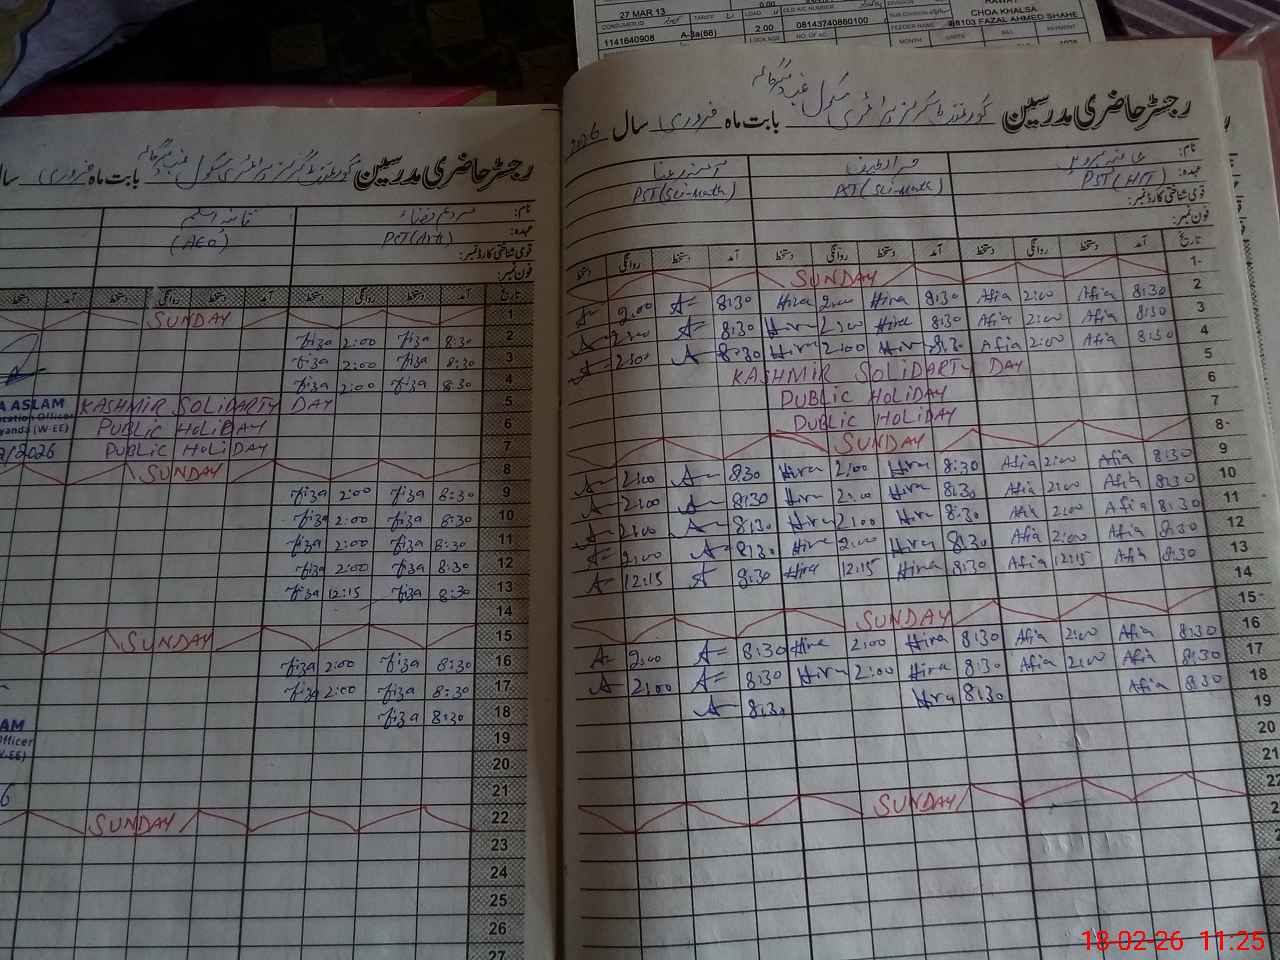 27 MAR 13
LOAD
OLD A/C NUMBER
CONSUMER ID
TARIFF
2.00
08143740860100
CHOA KHALSA
FEEDER NAME
98103 FAZAL AHMED SHAHE
1141640908
A-3a(66)
LOCK AGE
NO. OF AC
MONTH
UNITS
BILL
PAYMENT
رجسٹر حاضری مدرسین گورنمنٹ گرلز پرائمری سکول بابت ماہ فروری سال 2026
نام:
عہدہ: PST (HT) PST (Sci-Math) PST (Sci-Math)
قومی شناختی کارڈ نمبر:
فون نمبر:
تاریخ آمد دستخط روانگی دستخط آمد دستخط روانگی دستخط آمد دستخط روانگی دستخط
1 SUNDAY
A 2:00 A 8:30 Hira 2:00 Hira 8:30 Afia 2:00 Afia 8:30 2
A 2:00 A 8:30 Hira 2:00 Hira 8:30 Afia 2:00 Afia 8:30 3
A 2:00 A 8:30 Hira 2:00 Hir 8:30 Afia 2:00 Afia 8:30 4
KASHMIR SOLIDARTY DAY 5
PUBLIC HOLIDAY 6
PUBLIC HOLIDAY 7
SUNDAY 8
A 2:00 A 8:30 Hira 2:00 Hira 8:30 Afia 2:00 Afia 8:30 9
A 2:00 A 8:30 Hira 2:00 Hira 8:30 Afia 2:00 Afia 8:30 10
A 2:00 A 8:30 Hira 2:00 Hira 8:30 Afia 2:00 Afia 8:30 11
A 2:00 A 8:30 Hira 2:00 Hira 8:30 Afia 2:00 Afia 8:30 12
A 12:15 A 8:30 Hira 12:15 Hira 8:30 Afia 12:15 Afia 8:30 13
14
SUNDAY 15
A 2:00 A 8:30 Hira 2:00 Hira 8:30 Afia 2:00 Afia 8:30 16
A 2:00 A 8:30 Hira 2:00 Hira 8:30 Afia 2:00 Afia 8:30 17
A 8:30 Hira 8:30 Afia 8:30 18
19
20
21
SUNDAY 22
رجسٹر حاضری مدرسین گورنمنٹ گرلز پرائمری سکول بابت ماہ فروری سال
نام:
عہدہ: PST (Arts) (AEO)
قومی شناختی کارڈ نمبر:
فون نمبر:
تاریخ آمد دستخط روانگی دستخط آمد دستخط روانگی دستخط آمد دستخط
SUNDAY 1
Fiza 2:00 Fiza 8:30 2
Fiza 2:00 Fiza 8:30 3
Fiza 2:00 Fiza 8:30 4
A ASLAM
KASHMIR SOLIDARTY DAY 5
cation Officer
PUBLIC HOLIDAY 6
anda (W-EE)
PUBLIC HOLIDAY 7
/2026
SUNDAY 8
Fiza 2:00 Fiza 8:30 9
Fiza 2:00 Fiza 8:30 10
Fiza 2:00 Fiza 8:30 11
Fiza 2:00 Fiza 8:30 12
Fiza 12:15 Fiza 8:30 13
14
SUNDAY 15
Fiza 2:00 Fiza 8:30 16
Fiza 2:00 Fiza 8:30 17
Fiza 8:30 18
AM
Officer
19
20
21
SUNDAY 22
23
24
25
26
27
18-02-26 11:25